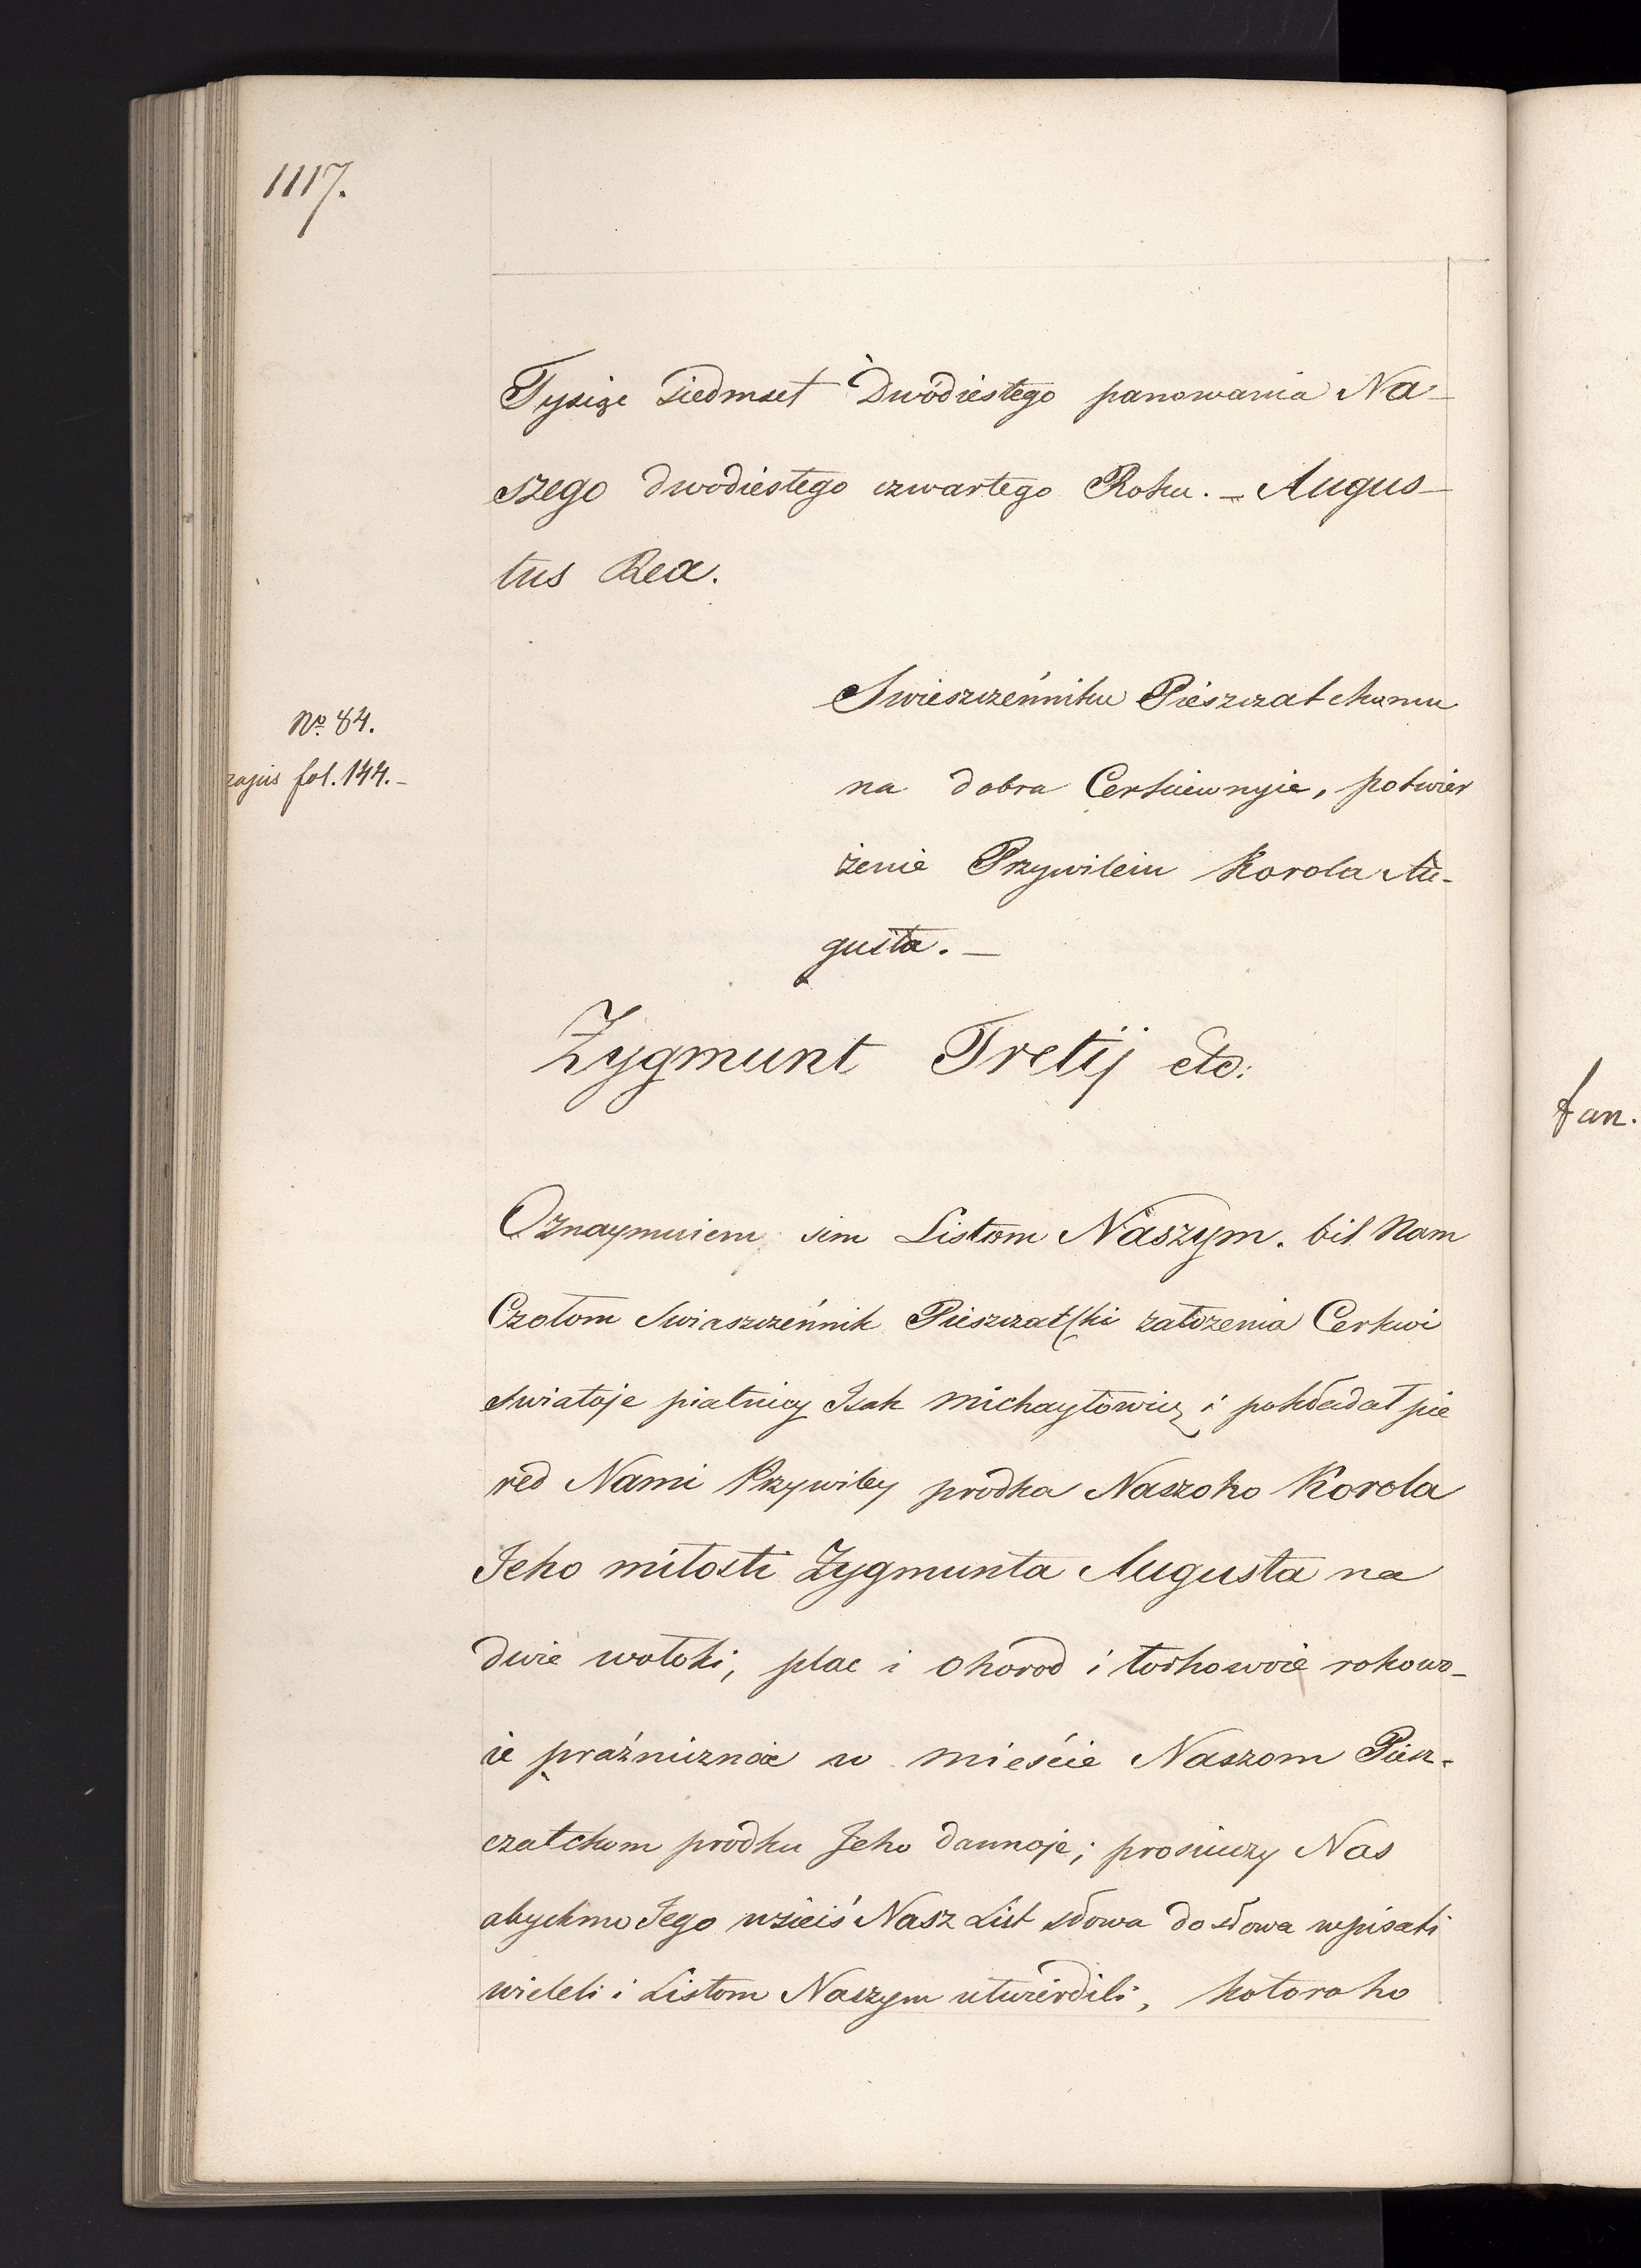 1117.
Tysiąc siedmset Dwódiestego panowania Na-
szego dwodiestego czwartego Roku. — Augus-
tus Rex.
Swieszczeńniku Pieszczatckomu
No. 84.
na dobra Cerkiewnyie, potwier
fol. 144. —
żenie Przywileiu Korola Au-
gusta. —
Zygmunt Tretij etc:
Oznaymuiem sim Listom Naszym. bil Nam
Czołom Swiaszczeńnik Pieszczatski załozenia Cerkwi
Swiatoje piatnicy Isak Michayłowicz i pokładał pie
red Nami Przywiley prodka Naszoho Korola
Jeho miłosti Zygmunta Augusta na
dwie wołoki, plac i ohorod i torhowoie rokowo-
ie praźnicznoie w mieście Naszom Piesz-
czatckom prodku Jeho dannoje; prosiuczy Nas
abychmo Jego wsieiś Nasz List słowa do słowa wpisati
wieleli i Listom Naszym utwierdili, kotoroho
fan.